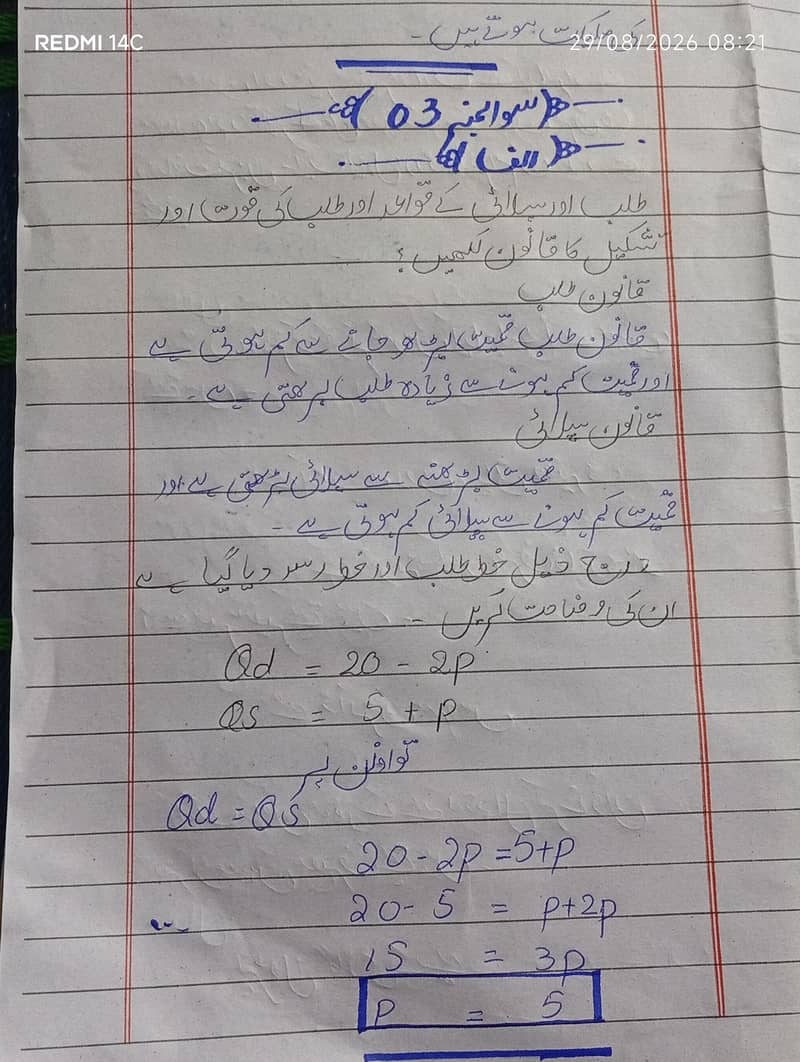 REDMI 14C
29/08/2026 08:21
ہوتے ہیں۔
سوالنمبر 03
الف
طلب اور سپلائی کے قواعد اور طلب کی قورت اور
تشکیل کا قانون لکھیں؟
قانون طلب
قانون طلب قیمت بڑھ جانے سے کم ہوتی ہے
اور قیمت کم ہونے سے زیادہ طلب بڑھتی ہے۔
قانون سپلائی
قیمت بڑھنے سے سپلائی بڑھتی ہے اور
قیمت کم ہونے سے سپلائی کم ہوتی ہے۔
درج ذیل خط طلب اور خط رسد دیا گیا ہے
ان کی وضاحت کریں۔
Qd = 20 - 2p
Qs = 5 + p
توازن پر
Qd = Qs
20 - 2p = 5+p
20 - 5 = p+2p
15 = 3p
P = 5